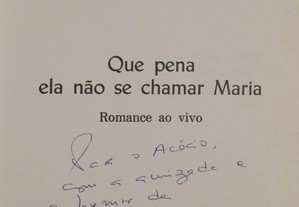 Que pena
ela não se chamar Maria
Romance ao vivo
Para o Acácio,
com a amizade e
de